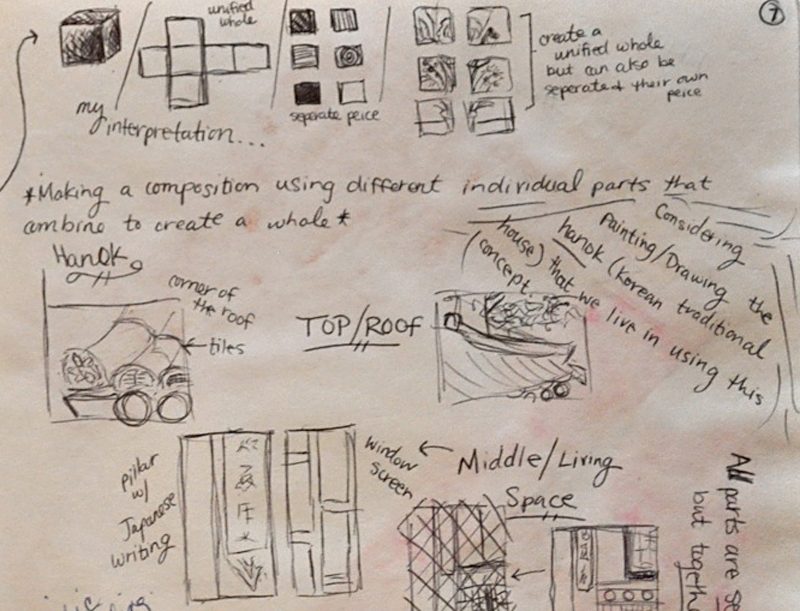 7
unified
whole
my
interpretation...
seperate peice
create a
unified whole
but can also be
seperated + their own
peice
*Making a composition using different individual parts that
combine to create a whole*
Considering
Painting/Drawing the
hanok (Korean traditional
house) that we live in using this
concept.
Hanok
corner of
the roof
tiles
TOP/ROOF
Pillar
w/
Japanese
writing
window
screen
Middle/Living
Space
All parts are
but together